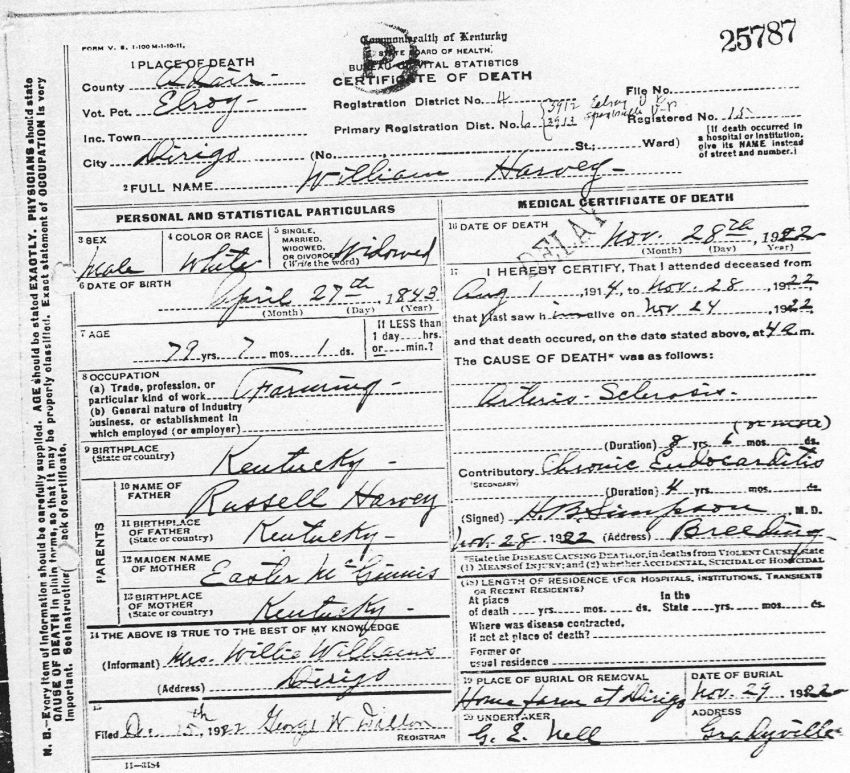 FORM V. S. 1-100 M-1-10-11.
Commonwealth of Kentucky
STATE BOARD OF HEALTH.
BUREAU OF VITAL STATISTICS
CERTIFICATE OF DEATH
25787
1 PLACE OF DEATH
County Adair
Vot. Pct. Elroy
Inc. Town
City Dirigo (No. St.; Ward)
Registration District No. 4
File No.
Primary Registration Dist. No. 3912 Elroy
3913
Registered No. 15
[If death occurred in a hospital or institution, give its NAME instead of street and number.]
2 FULL NAME William Harvey
PERSONAL AND STATISTICAL PARTICULARS
3 SEX
Male
4 COLOR OR RACE
White
5 SINGLE, MARRIED, WIDOWED, OR DIVORCED (Write the word)
Widowed
6 DATE OF BIRTH
April 27th, 1843
(Month) (Day) (Year)
7 AGE
79 yrs. 7 mos. 1 ds.
If LESS than 1 day....hrs. or....min.?
8 OCCUPATION
(a) Trade, profession, or particular kind of work Farming
(b) General nature of Industry business, or establishment in which employed (or employer)
9 BIRTHPLACE
(State or country) Kentucky
PARENTS
10 NAME OF FATHER
Russell Harvey
11 BIRTHPLACE OF FATHER
(State or country) Kentucky
12 MAIDEN NAME OF MOTHER
Easter McGinnis
13 BIRTHPLACE OF MOTHER
(State or country) Kentucky
14 THE ABOVE IS TRUE TO THE BEST OF MY KNOWLEDGE
(Informant) Mrs. Willie Williams
(Address) Dirigo
15
Filed Dec 15th 1922 George W Dillon
REGISTRAR
11-3184
MEDICAL CERTIFICATE OF DEATH
DELAY
16 DATE OF DEATH
Nov. 28th, 1922
(Month) (Day) (Year)
17 I HEREBY CERTIFY, That I attended deceased from
Aug 1, 1914, to Nov. 28, 1922,
that I last saw him alive on Nov 24, 1922,
and that death occured, on the date stated above, at 4 a m.
The CAUSE OF DEATH* was as follows:
Arterio-Sclerosis
(or more)
(Duration) 8 yrs. 6 mos. ds.
Contributory Chronic Endocarditis
(SECONDARY)
(Duration) 4 yrs. mos. ds.
(Signed) H. B. Simpson M. D.
Nov. 28 1922 (Address) Breeding
*State the DISEASE CAUSING DEATH, or, in deaths from VIOLENT CAUSES, state
(1) MEANS OF INJURY; and (2) whether ACCIDENTAL, SUICIDAL OR HOMICIDAL
(18) LENGTH OF RESIDENCE (FOR HOSPITALS, INSTITUTIONS, TRANSIENTS OR RECENT RESIDENTS)
At place of death yrs. mos. ds.
In the State yrs. mos. ds.
Where was disease contracted, if not at place of death?
Former or usual residence
19 PLACE OF BURIAL OR REMOVAL
Home farm at Dirigo
DATE OF BURIAL
Nov. 29 1922
20 UNDERTAKER
G. E. Nell
ADDRESS
Gradyville
N. B.—Every item of information should be carefully supplied. AGE should be stated EXACTLY. PHYSICIANS should state
CAUSE OF DEATH in plain terms, so that it may be properly classified. Exact statement of OCCUPATION is very
important. See instructions back of certificate.